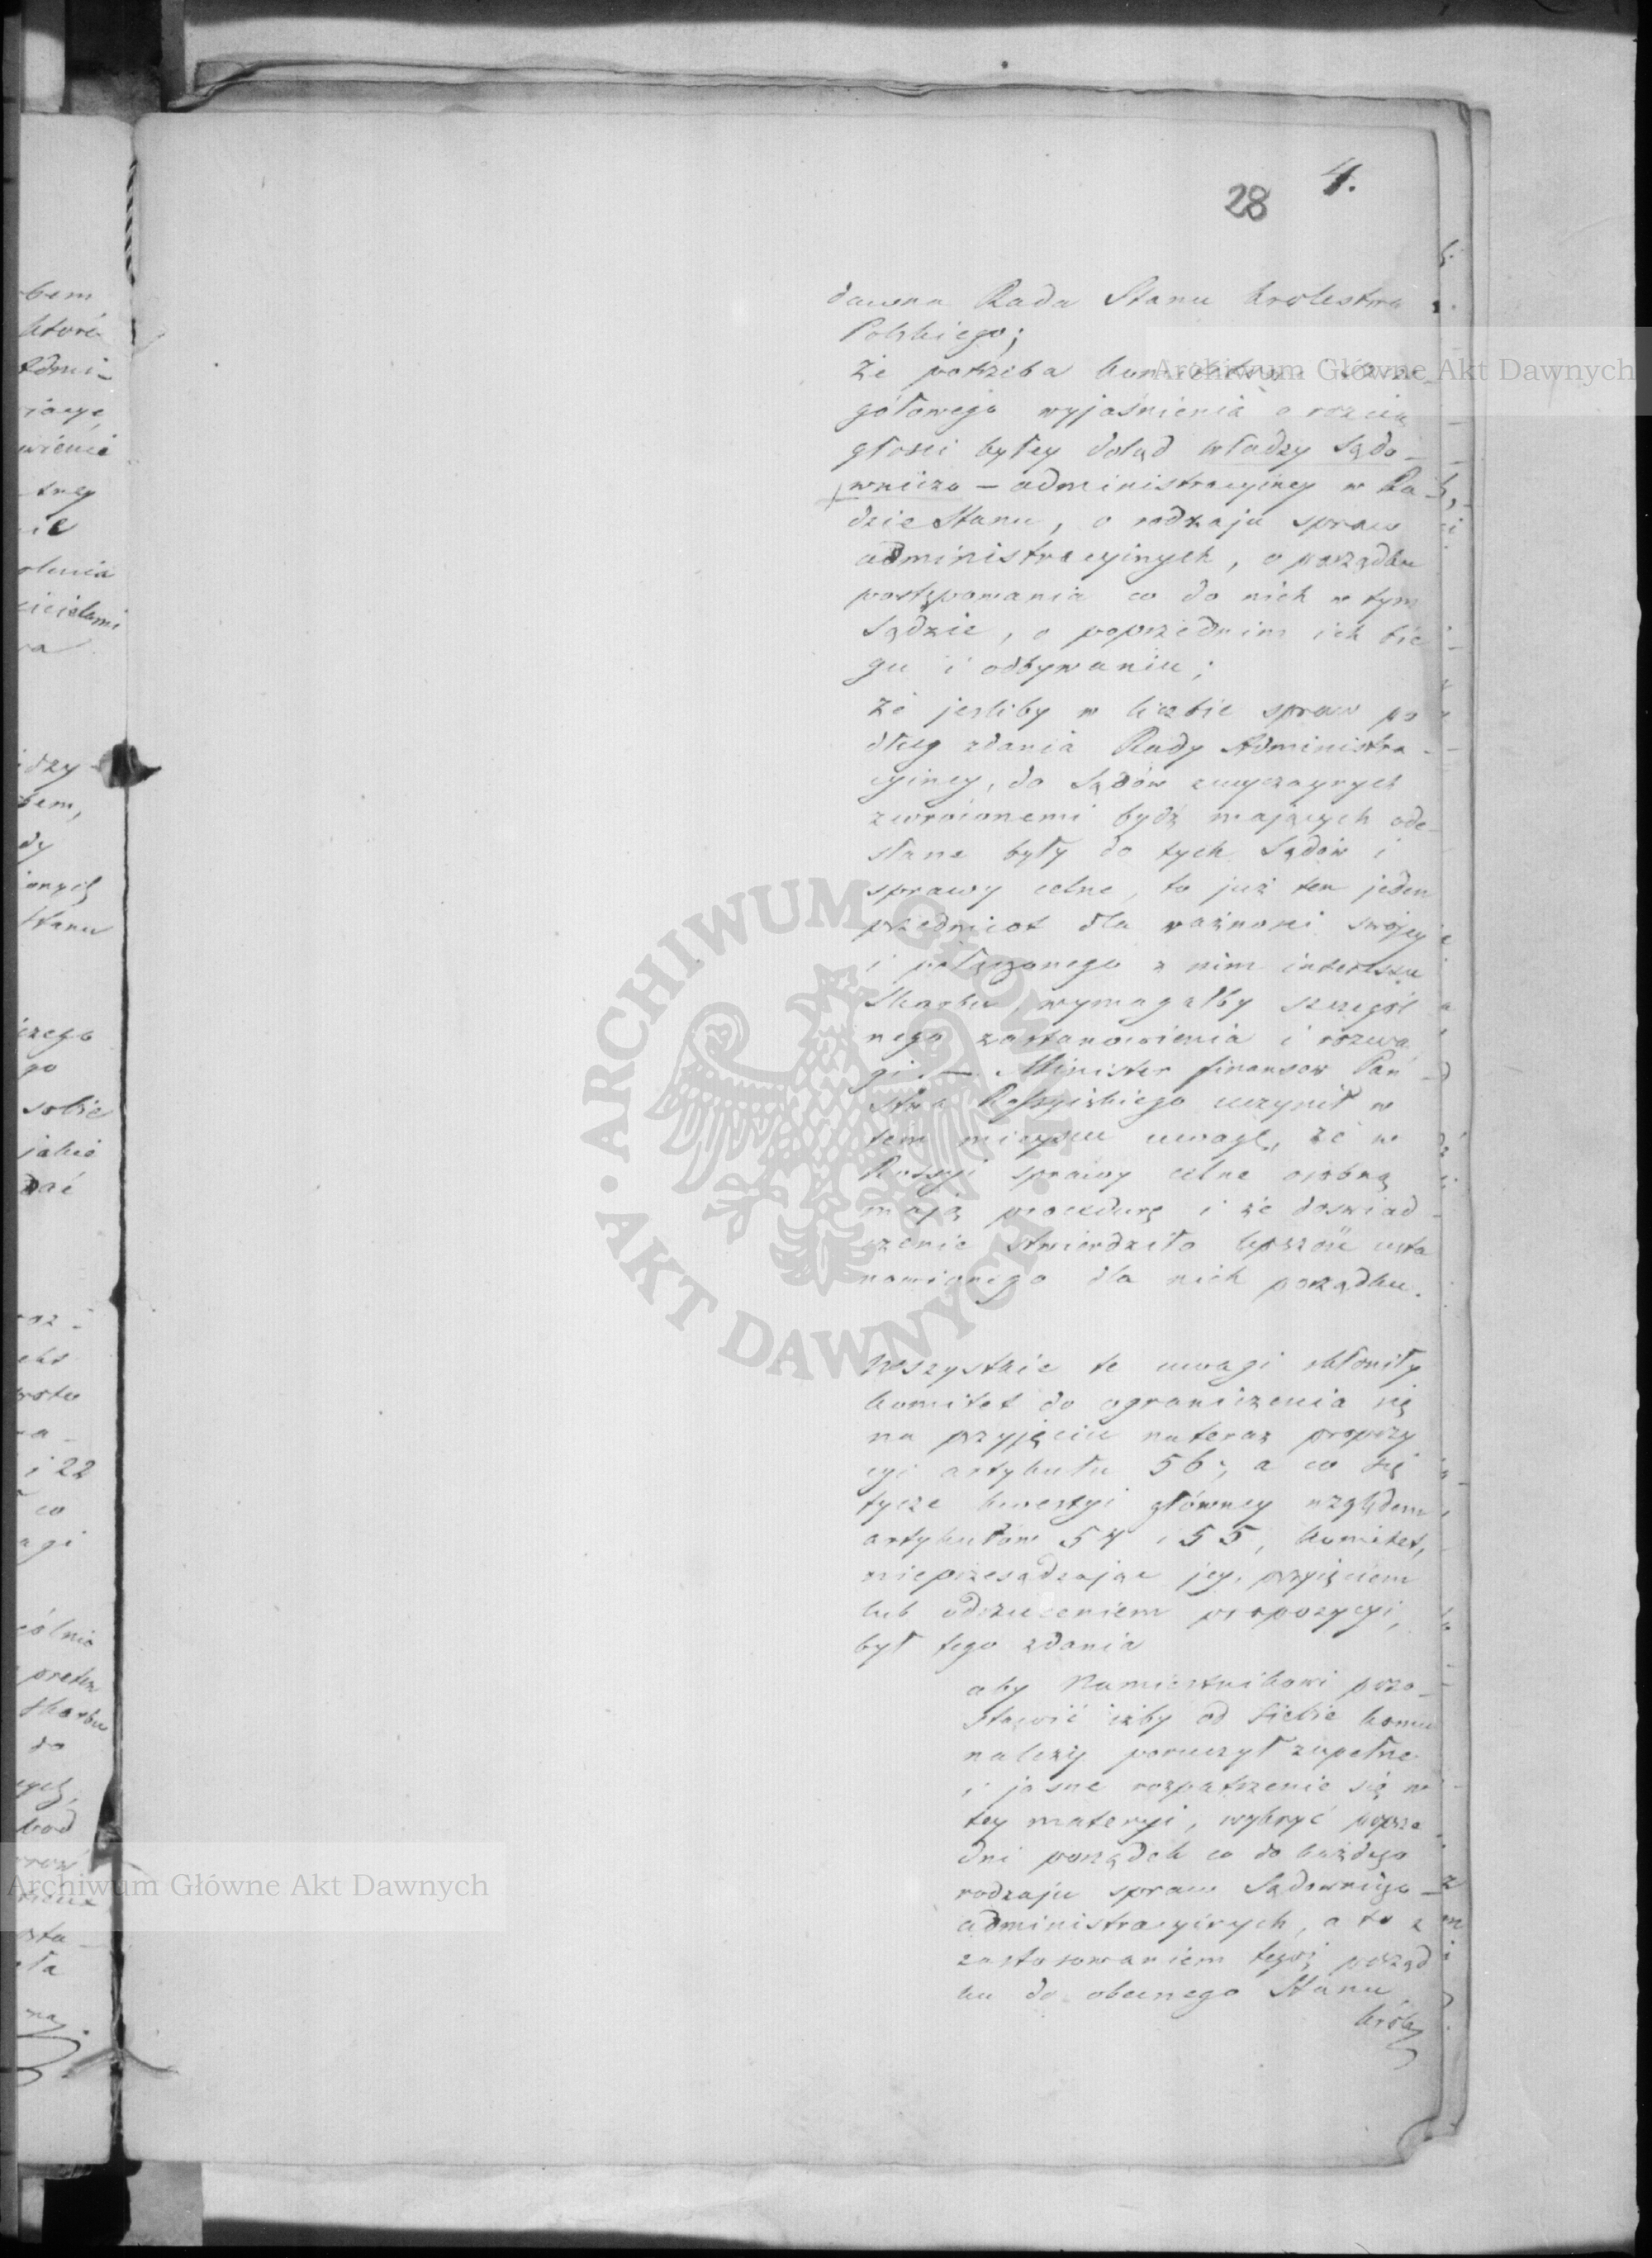 28 4.
dawna Rada Stanu Krolestwa
Polskiego;
że potrzeba szcze
gółowego wyjaśnienia o rozcią
głości byłey dotąd władzy Sądo-
wniczo - administracyiney w Ra-
dzie Stanu, o rodzaju spraw
administracyinych, o porządku
postępowania co do nich w tym
Sądzie, o poprzednim ich bie
gu i odbywaniu;
że jesliby w liczbie spraw po
dług zdania Rady Administra-
cyiney, do Sądów zwyczaynych
zwróconemi bydź mających ode-
słane były do tych Sądów i
sprawy celne, to już ten jeden
przedmiot dla ważności swojey
i połączonego z nim interessu
Skarbu, wymagałby szczegól
nego zastanowienia i rozwa
gi. — Minister finansow Pań
stwa Rossyiskiego uczynił w
tem mieyscu uwagę, że w
Rossyi sprawy celne osobną
mają procedurę i że doswiad-
czenie stwierdziło lepszość usta
nowionego dla nich porządku.
Wszystkie te uwagi skłoniły
Komitet do ograniczenia się
na przyjęciu nateraz propozy
cyi artykułu 56; a co się
tycze kwestyi główney względem
artykułów 54 i 55, Komitet,
nieprzesądzając jey, przyięciem
lub odrzuceniem propozycyi,
był tego zdania
aby Namiestnikowi pozo-
stawić iżby od siebie komu
należy poruczył zupełne
i jasne rozpatrzenie się w
tey materyi, wykryć poprze
dni porządek co do każdego
rodzaju spraw Sądowniczo-
administracyinych, a to z
zastosowaniem tegoż porząd
ku do obecnego Stanu
Króle
Archiwum Główne Akt Dawnych
ARCHIWUM GŁÓWNE AKT DAWNYCH
Archiwum Główne Akt Dawnych